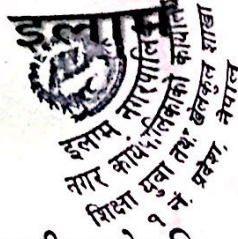 इलाम
इलाम नगरपालिका
नगर कार्यपालिकाको कार्यालय
शिक्षा युवा तथा खेलकुद शाखा
१ नं. प्रदेश, नेपाल